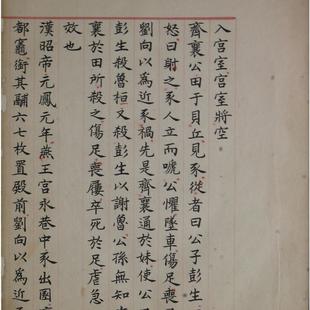 入宮室宮室將空
齊襄公田于貝丘見豕從者曰公子彭生
怒曰射之豕人立而嗁公懼墜車傷足喪
劉向以爲近豕禍先是齊襄通於妹使公
彭生殺魯桓又殺彭生以謝魯公孫無知
襄於田所殺之傷足喪屨卒死於足虐急
效也
漢昭帝元鳳元年燕王宮永巷中豕出圂
都竈銜其鬴六七枚置殿前劉向以爲近